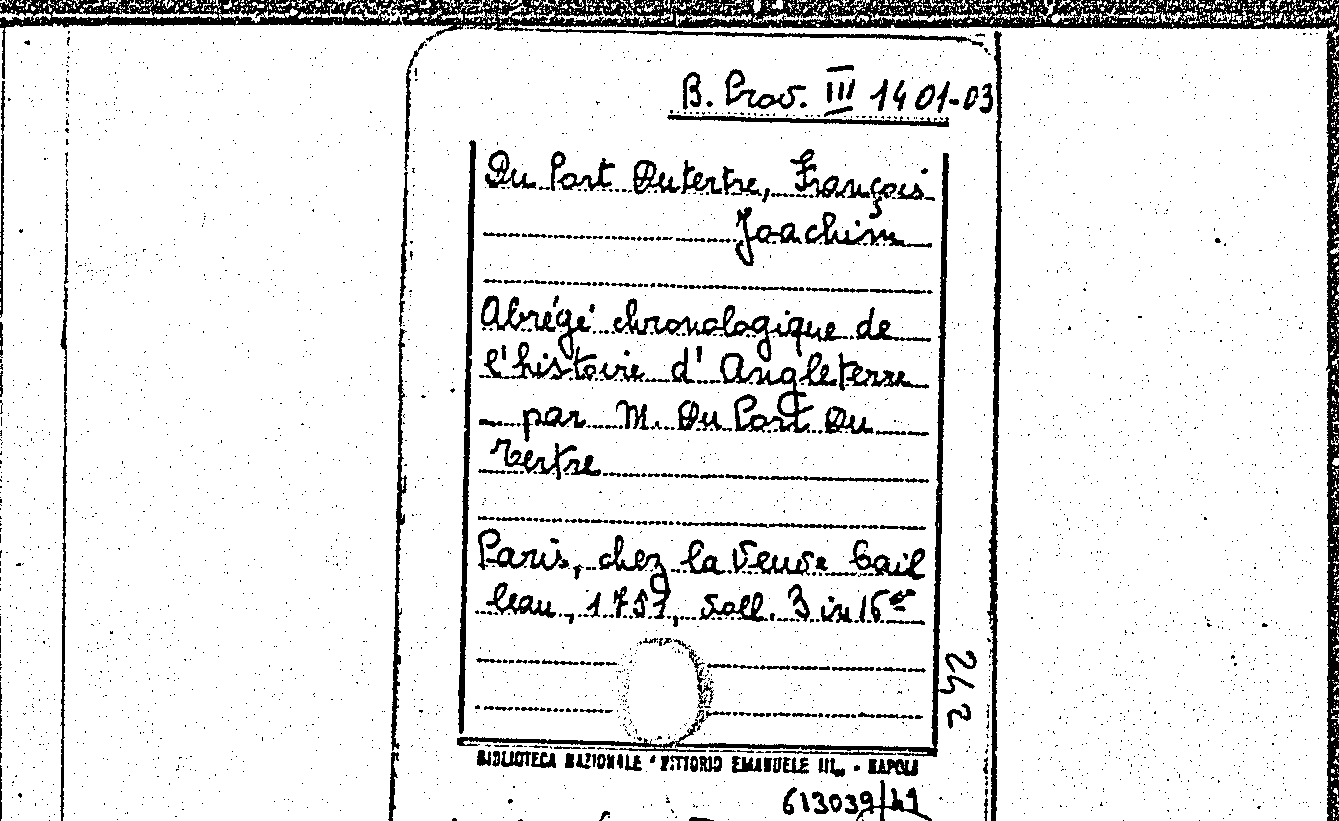 B. Prov. III 1401-03
Du Port Dutertre, François
Joachim
Abrégé chronologique de
l'histoire d'Angleterre
- par M. Du Port Du
Tertre
Paris, chez la Veuve Cail
leau, 1751, voll. 3 in 16°
242
BIBLIOTECA NAZIONALE "VITTORIO EMANUELE III" - NAPOLI
613039/49